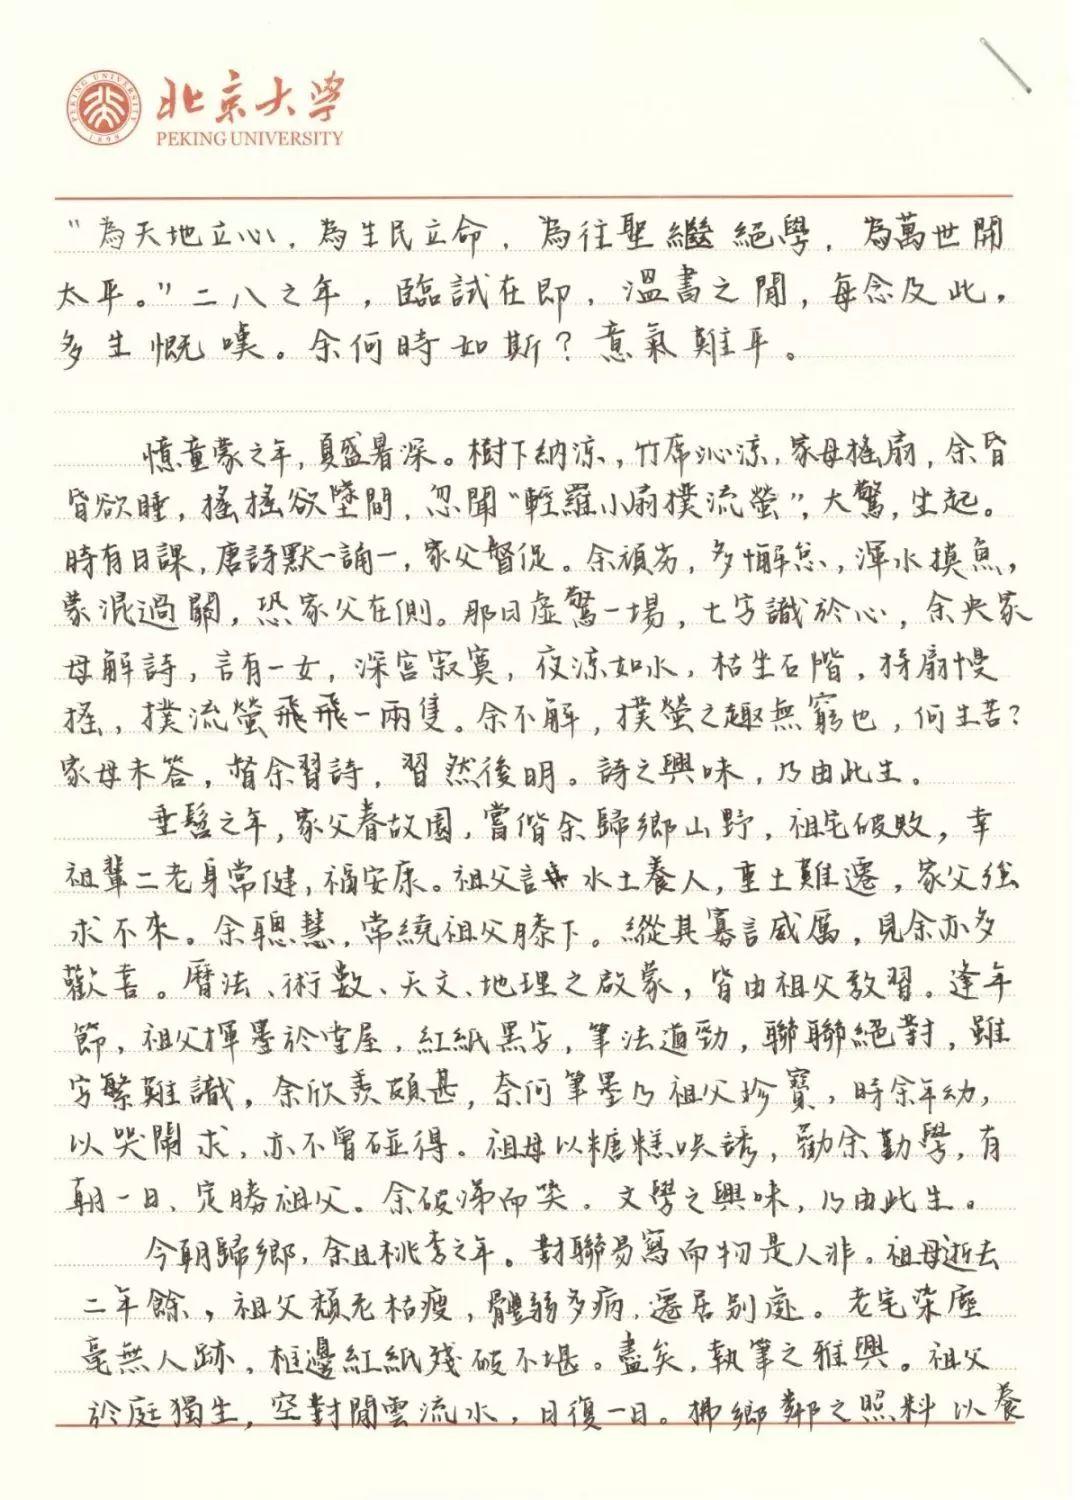 北京大学
PEKING UNIVERSITY
PEKING UNIVERSITY
1898
"為天地立心，為生民立命，為往聖繼絕學，為萬世開
太平。"二八之年，臨試在即，溫書之間，每念及此，
多生慨嘆。余何時如斯？意氣難平。
憶童蒙之年，夏盛暑深。樹下納涼，竹席沁涼，家母搖扇，余昏
昏欲睡，搖搖欲墜間，忽聞"輕羅小扇撲流螢"，大驚，坐起。
時有日課，唐詩默一誦一，家父督促。余頑劣，多懈怠，渾水摸魚，
蒙混過關，恐家父在側。那日虛驚一場，七字識於心，余央家
母解詩，言有一女，深宮寂寞，夜涼如水，枯坐石階，持扇慢
搖，撲流螢飛飛一兩隻。余不解，撲螢之趣無窮也，何生苦？
家母未答，督余習詩，習然後明。詩之興味，乃由此生。
垂髫之年，家父眷故園，嘗偕余歸鄉山野，祖宅破敗，幸
祖輩二老身常健，福安康。祖父言 水土養人，重土難遷，家父強
求不來。余聰慧，常繞祖父膝下。縱其寡言威厲，見余亦多
歡喜。曆法、術數、天文、地理之啟蒙，皆由祖父教習。逢年
節，祖父揮墨於堂屋，紅紙黑字，筆法遒勁，聯聯絕對，雖
字繁難識，余欣羨頗甚，奈何筆墨乃祖父珍寶，時余年幼，
以哭鬧求，亦不曾碰得。祖母以糖糕哄誘，勸余勤學，有
朝一日、定勝祖父。余破涕而笑。文學之興味，乃由此生。
今朝歸鄉，余且桃李之年。對聯易寫而物是人非。祖母逝去
二年餘，祖父頹死枯瘦，體弱多病，遷居別處。老宅染塵
毫無人跡，框邊紅紙殘破不堪。盡矣，執筆之雅興。祖父
於庭獨坐，空對閒雲流水，日復一日。拂鄉鄰之照料以養